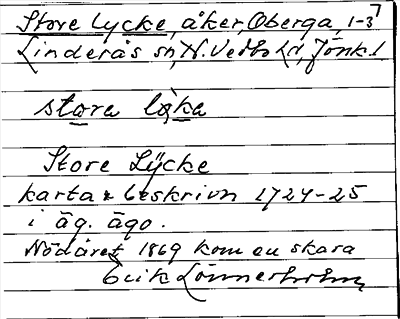 Store Lycke, åker, Oberga, 1-37
Linderås sn, N. Vedbo hd, Jönk. l
stora løka
Store Lÿcke
karta & beskrivn 1724-25
i äg. ägo.
Nödåret 1869 kom en skara
Erik Lönnerholm